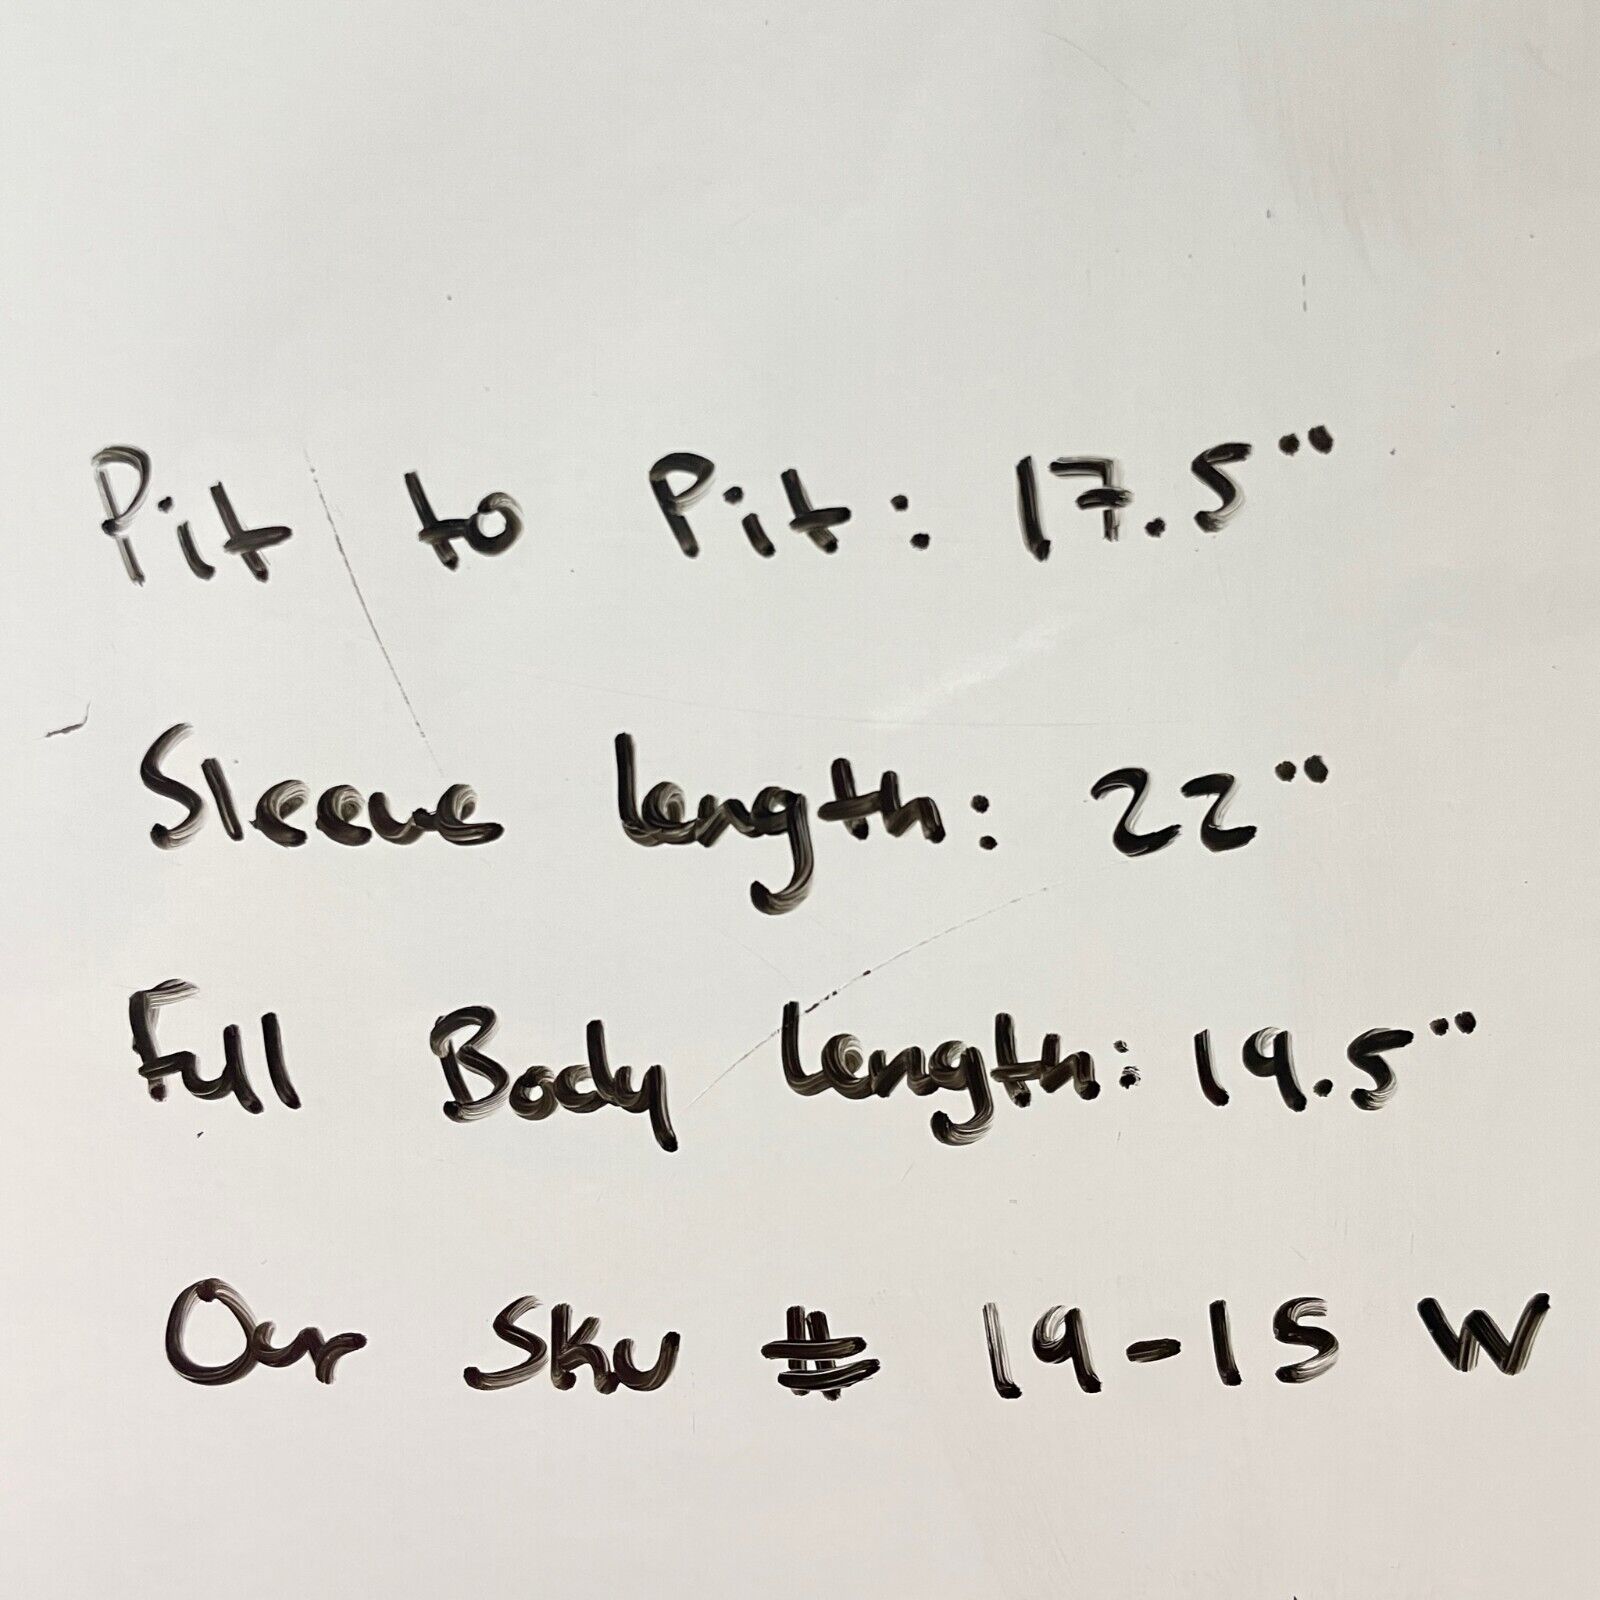 Pit to Pit: 17.5"
Sleeve length: 22"
Full Body length: 19.5"
Our Sku # 19-15 W